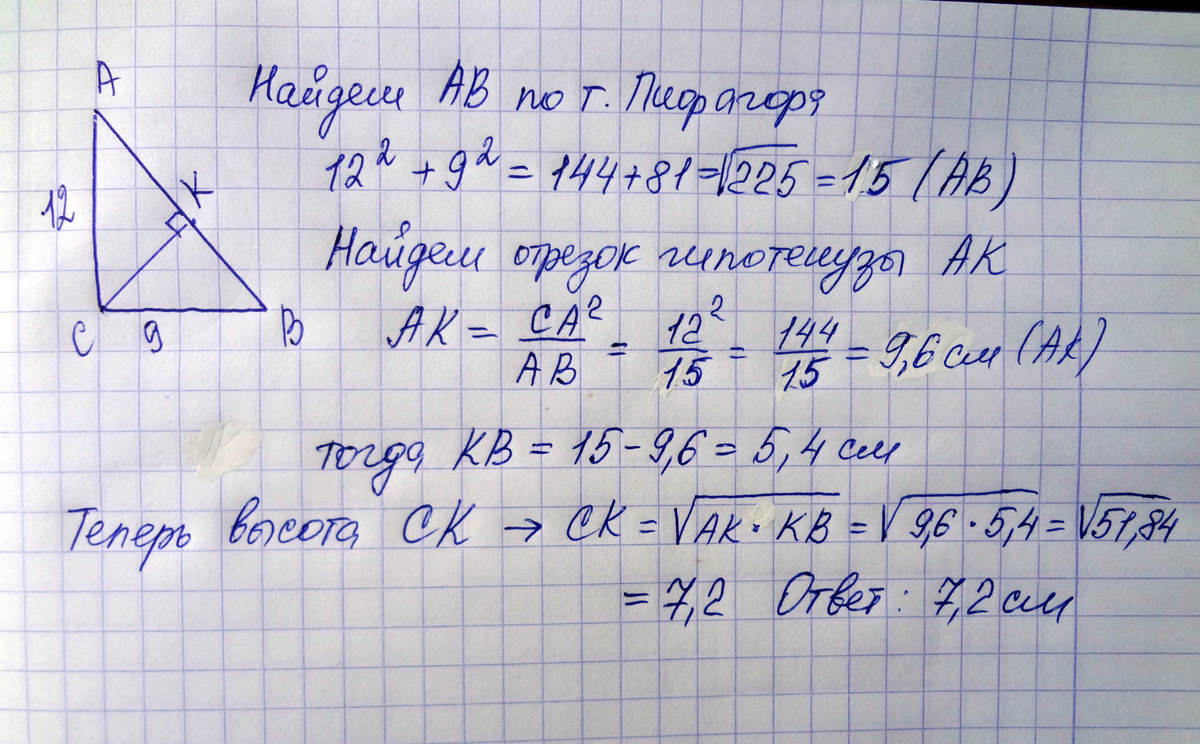 A
12
K
C
9
B
Найдем AB по т. Пифагора
12² + 9² = 144+81 = √225 = 15 (AB)
Найдем отрезок гипотенузы AK
AK = CA²/AB = 12²/15 = 144/15 = 9,6 см (AK)
тогда KB = 15 - 9,6 = 5,4 см
Теперь высота CK → CK = √AK · KB = √9,6 · 5,4 = √51,84
= 7,2 Ответ: 7,2 см